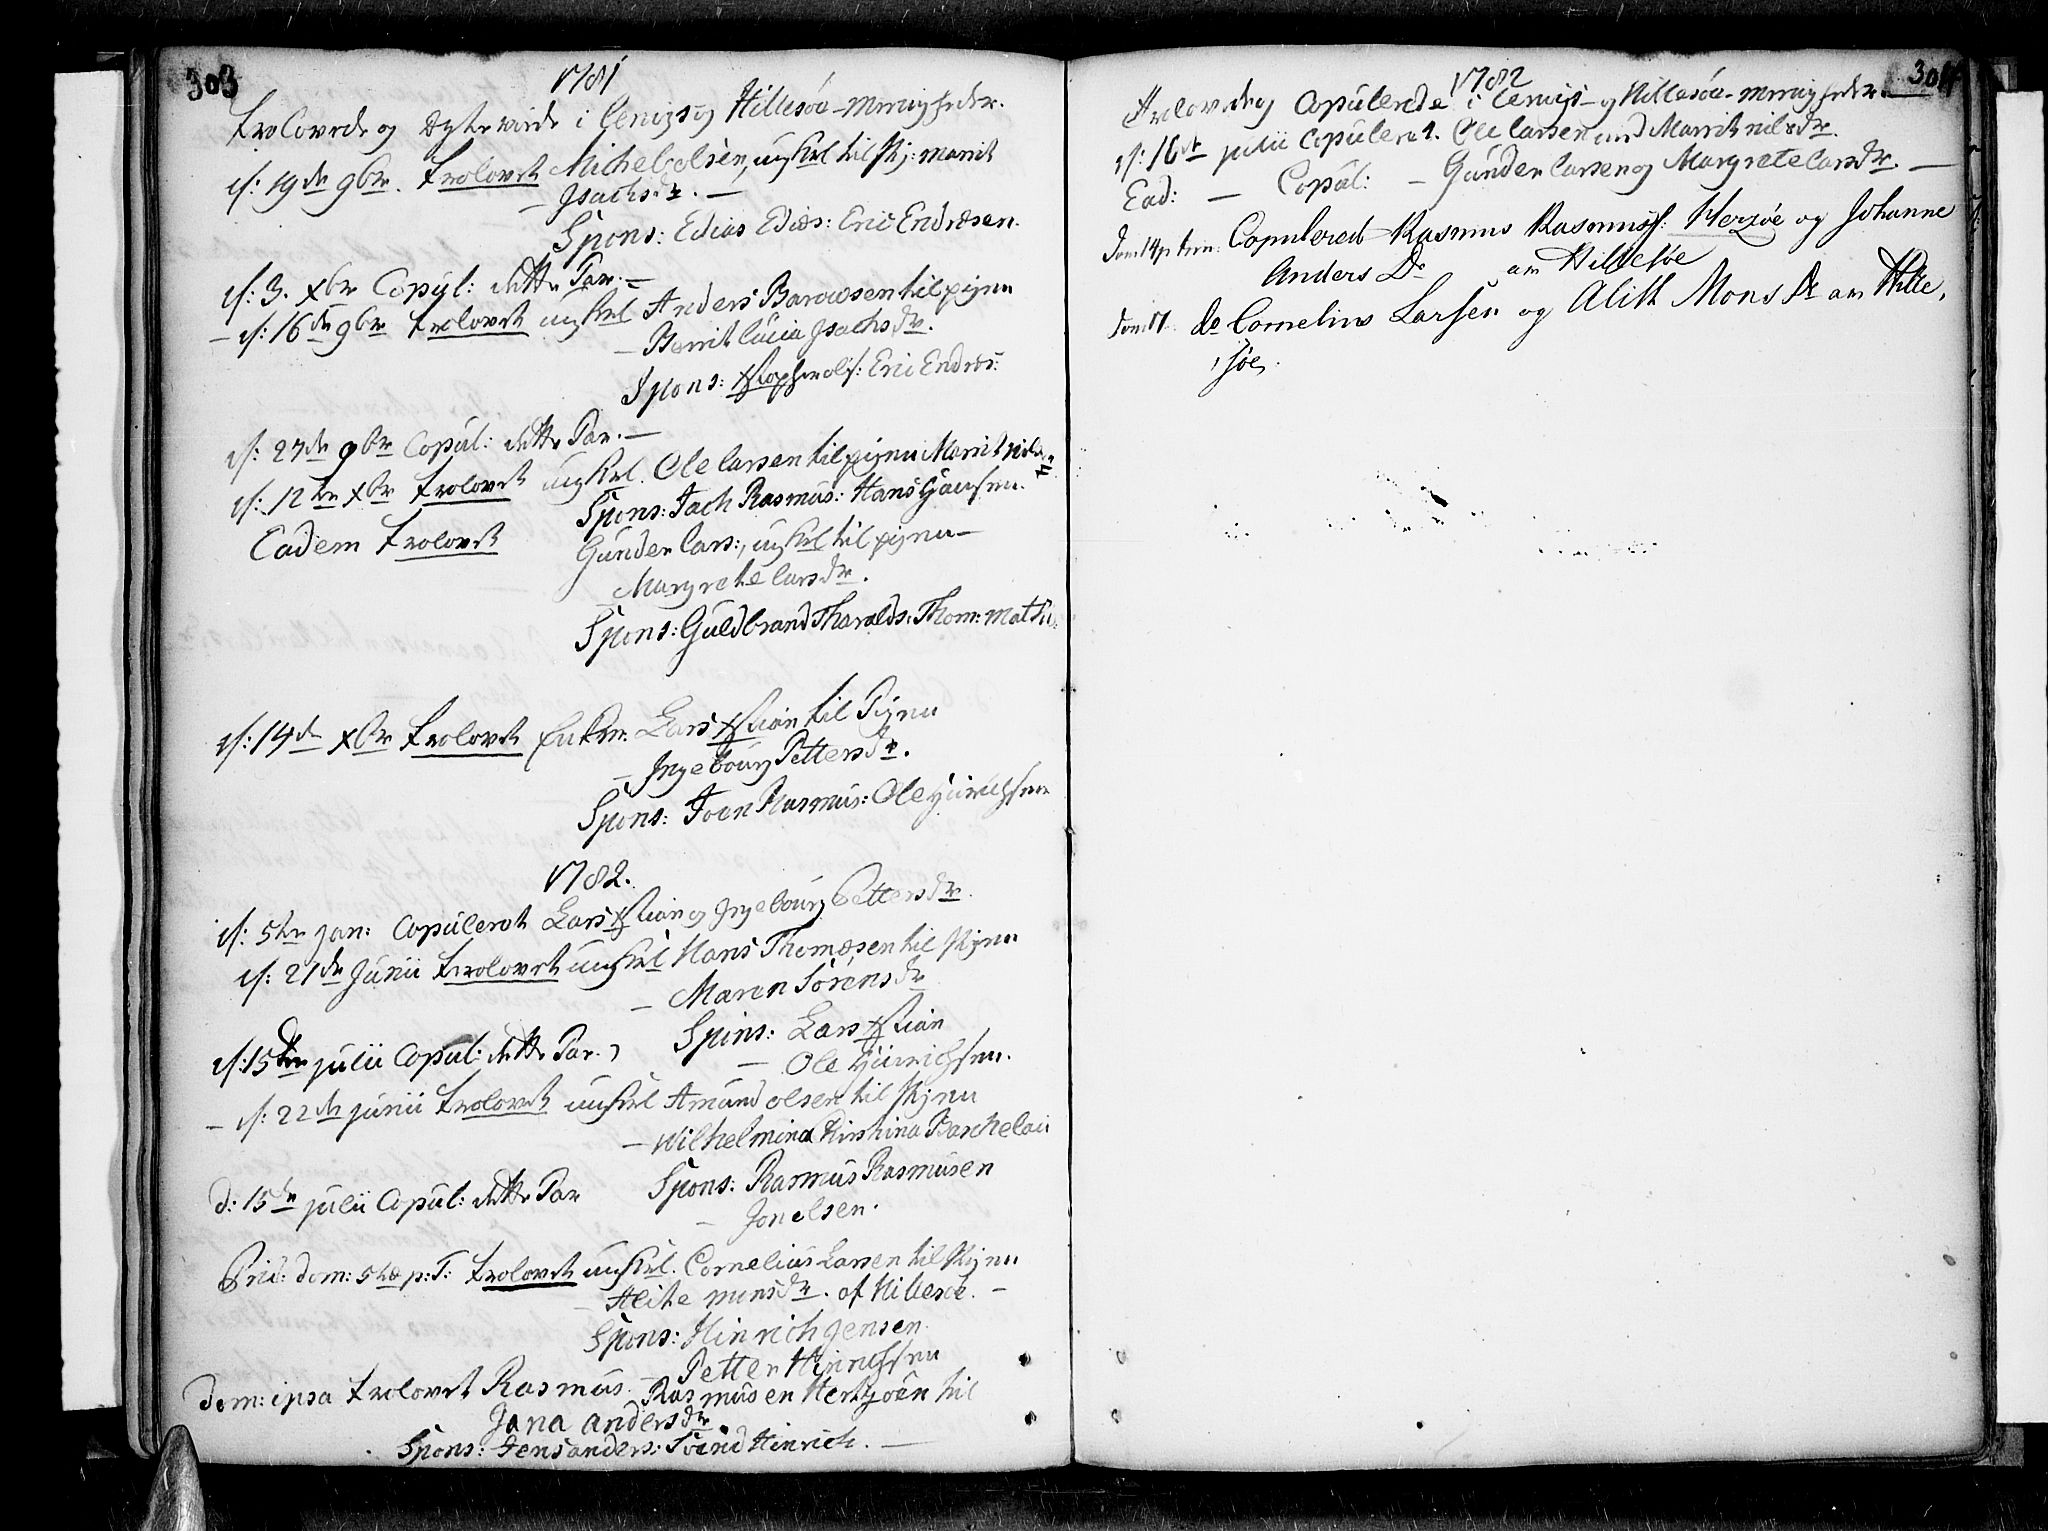 303
1781
Trolovede og Egteviede i Lenvigs og Hillesöe-Menigheder.
d: 19de 9br. Trolovet Michel olsen, ungkrl til pig: Marrit
- Isachsdr. -
Spons: Edias Edies: Eric Endresen.
d: 3. Xbr Copul: dette Par. -
- d: 16de 9br Trolovet ungkrl Anders Barowsen til pigen
- Berrit Lucia Isachsdr.
Spons: Xstopher ols: Eric Endres:
d: 27de 9br Copul: dette Par. -
d: 12te Xbr Trolovet ungkrl. Ole Larsen til pigen Marrit nilsdr
Spons: Jach Rasmus: Hans Hansen.
Eadem Trolovet Gunder Lars:, ungkrl til pigen -
- Margrete Larsdr.
Spons: Guldbrand Tharalds: Thom: Math:
d: 14de Xbr Trolovet Enkm: Lars Xstian til Pigen
- Ingebourg Pettersdr.
Spons: Joen Rasmus: Ole Hinrichsen
1782.
d: 5te Jan: Copuleret Lars Xstian og Ingebourg Pettersdr.
d: 21de Junii Trolovet ungkrl Hans Thomesen til Pigen
- Maren Sörensdr
Spins: Lars Xstian
d: 15de julii Copul: dette Par.
- Ole Hinrichsen.
- d: 22de junii Trolovet ungkrl Amund olsen til Pigen
- Wilhelmina Kirstina
Spons: Rasmus Rasmusen
d: 15de julii Copul: dette Par
- Jon olsen.
Prid: dom: 5te p: T: Trolovet ungkrl. Cornelius Larsen til Pigen
- Alite monsdr. af Hillesöe. -
Spons: Hinrich Jensen.
- Petter Hinrichsen
Dom: ipsa Trolovet Rasmus Rasmusen Hertzöen til
Jana andersdr.
Spons: Jens anders: Hinrich. -
304
1782
Trolovede og Copulerede i Lenvigs- og Hillesöe-Menigheder.
d: 16de julii Copuleret. Ole Larsen med Marrit nilsdr.
Ead: - Copul: - Gunder Larsen og Margrete Larsdr. -
Dom 14 p trin: Copulered Rasmus Rasmuss: Herzöe og Johanne
Anders Dr am Hillesöe
Dom 17 do Cornelius Larsen og Alith Mons Dr am Hille,
söe.